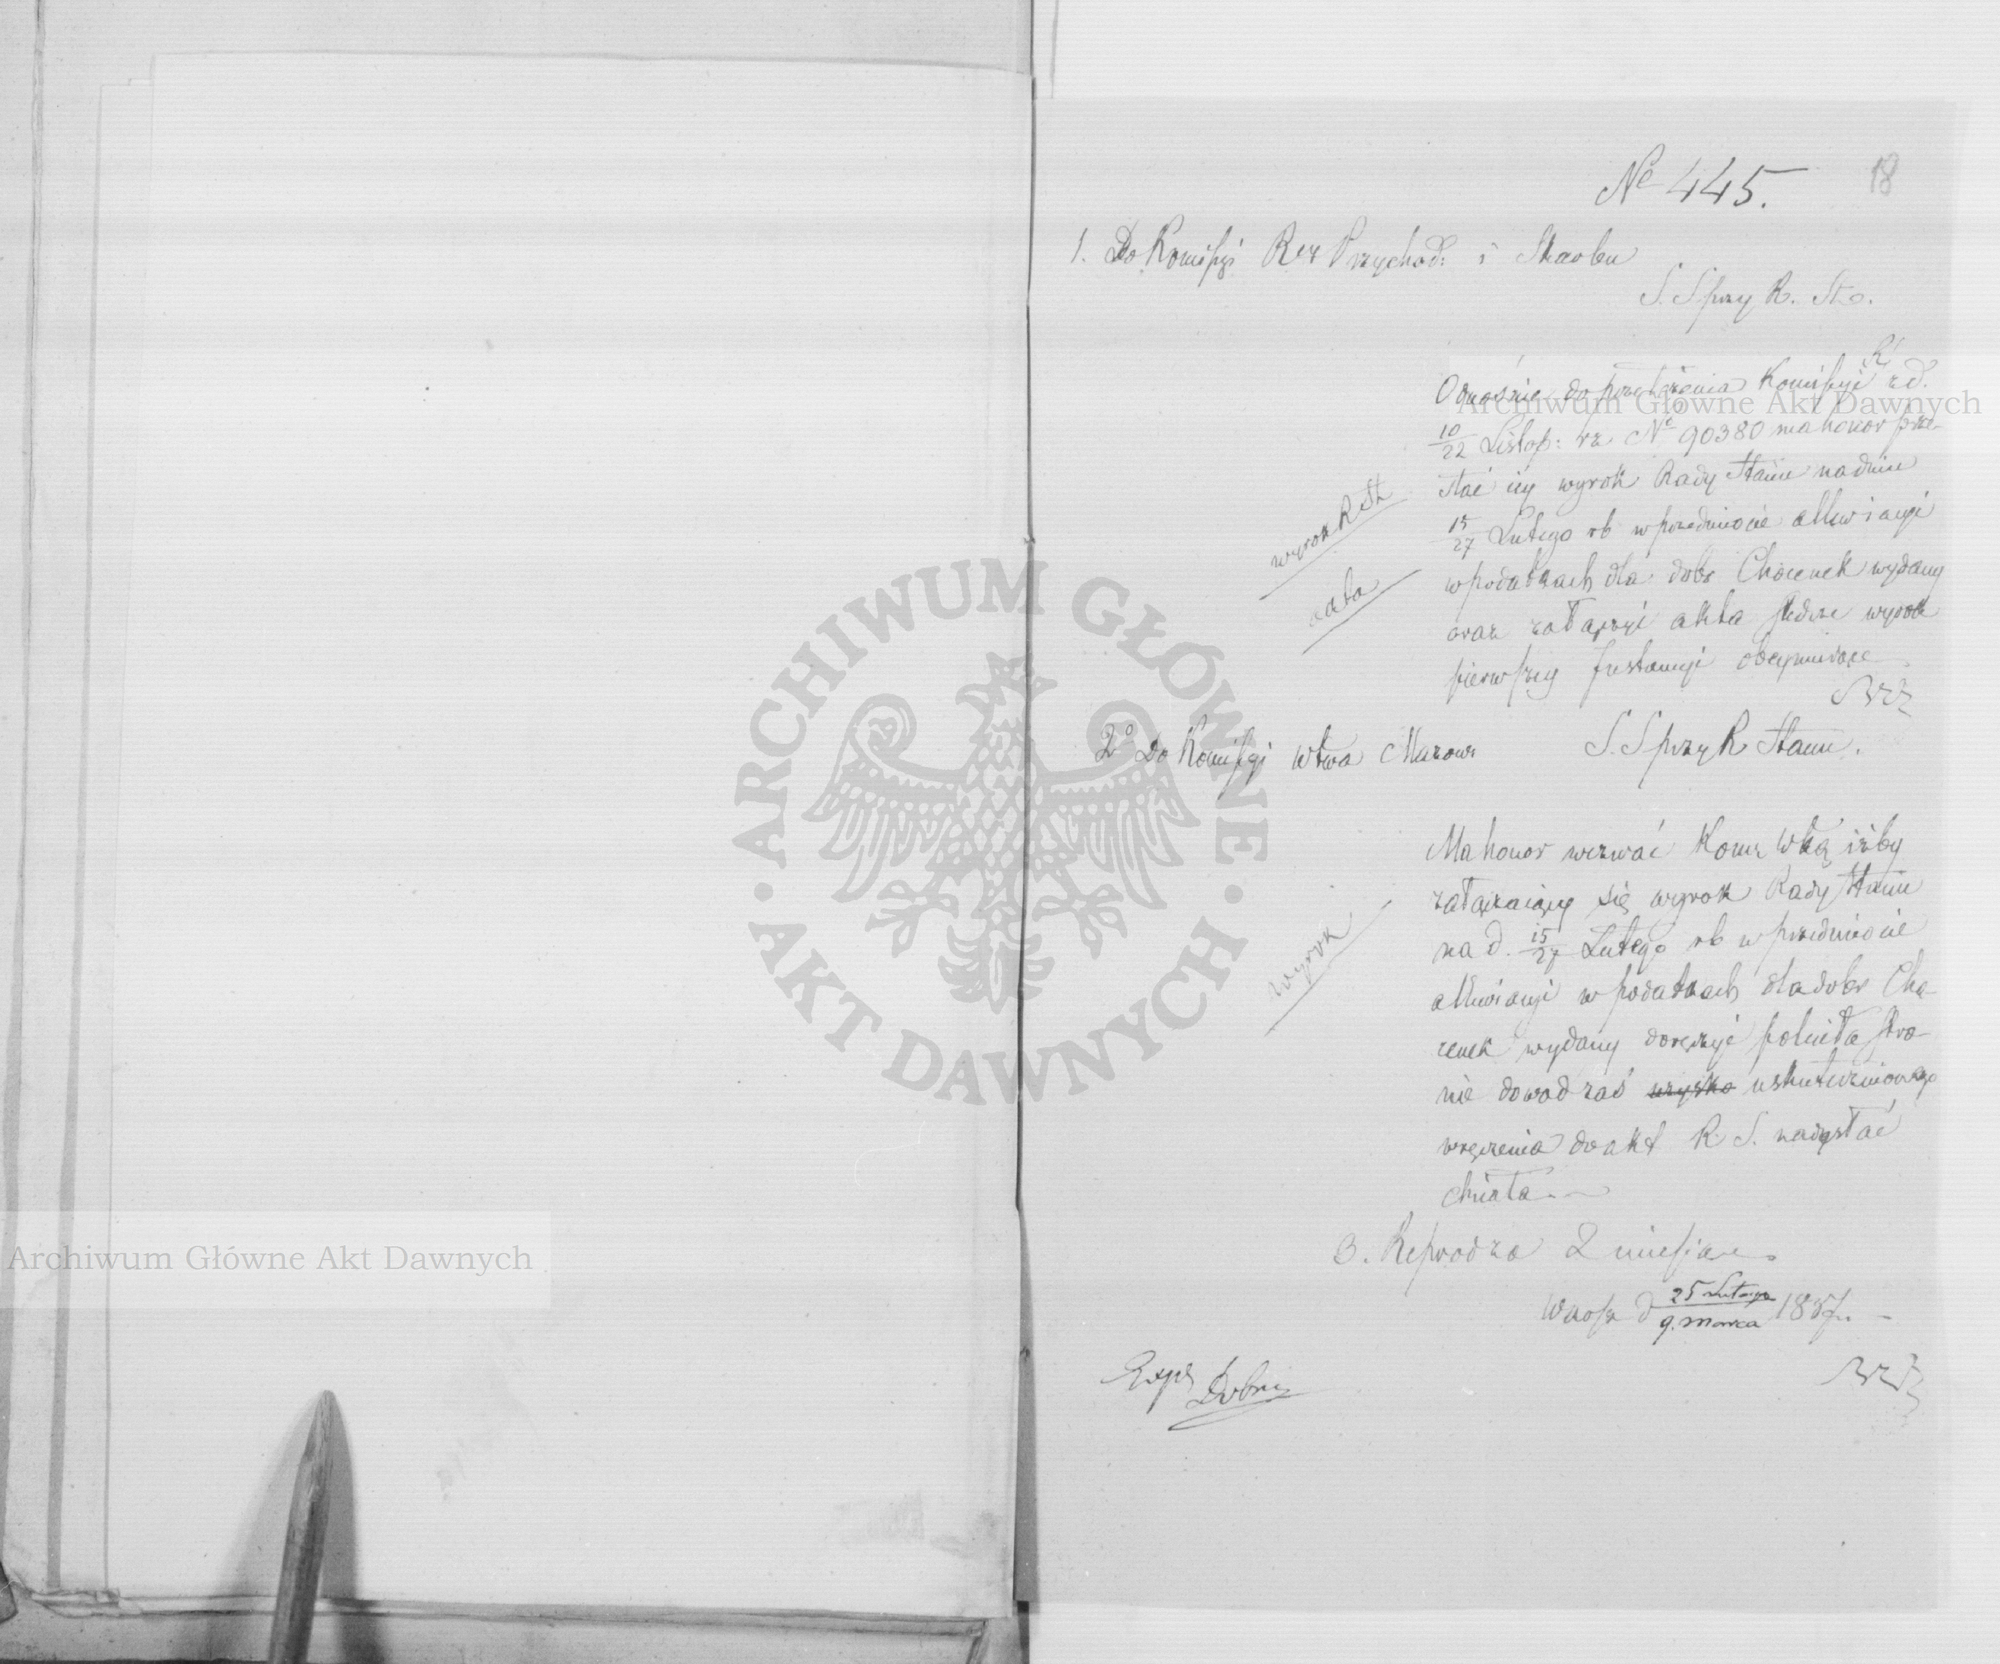 No 445.
18
1. Do Komissyi Rz Przychod: i Skarbu
S. S przy R. St.
Odnośnie do przełożenia Komissyi R zd.
10/22 Listop: rz No 90380 ma honor prze-
słać iey wyrok Rady Stanu na dniu
wyrok R St
15/27 Lutego rb w przedmiocie allewiacyi
w podatkach dla dobr Chocenek wydany
akta
oraz załączyć akta śledcze wyrok
pierwszey Instancyi obeymuiące
2o Do Komissyi Wtwa Mazow:
S. S przy R Stanu.
Ma honor wezwać Kom: Wką iżby
załączaiący się wyrok Rady Stanu
na d. 15/27 Lutego rb w przedmiocie
wyrok
allewiacyi w podatkach dla dobr Cho-
cenek wydany doręczyć poleciła stro-
nie dowod zaś uskutecznionego
wręczenia do akt R. S. nadesłać
chciała.
3. Reprod za 2 miesiące
Warsz d 25 Lutego / 9. Marca 1837.
Exp